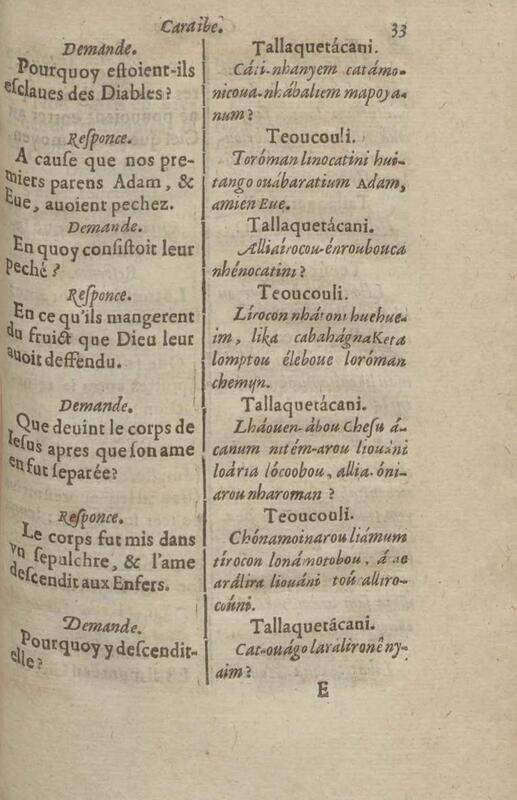 Caraibe.
33
Demande.
Pourquoy eſtoient-ils
eſclaues des Diables?
Reſponce.
A cauſe que nos pre-
miers parens Adam, &
Eue, auoient pechez.
Demande.
En quoy conſiſtoit leur
peché?
Reſponce.
En ce qu'ils mangerent
du fruict que Dieu leur
auoit deffendu.
Demande.
Que deuint le corps de
Ieſus apres que ſon ame
en fut ſeparée?
Reſponce.
Le corps fut mis dans
vn ſepulchre, & l'ame
deſcendit aux Enfers.
Demande.
Pourquoy y deſcendit-
elle?
Tallaquetácani.
Cáti-nhanyem catámo-
nicoua-nhábaliem mapoya-
num?
Teoucouli.
Toróman linocatini hui-
tango ouábaratium Adam,
amien Eue.
Tallaquetácani.
Alliaírocou-énroubouca
nhénocatini?
Teoucouli.
Lírocon nhátoni huehue-
im, lika cabahágnaKeta
lomptou éleboue loróman
chemijn.
Tallaquetácani.
Lháouen-ábou Cheſu á-
canum nitém-arou liouáni
loária lócoobou, allia-óni-
arou nharoman?
Teoucouli.
Chónamoinarou liámum
tírocon lonámotobou,
arálira liouáni toú alliro-
coúni.
Tallaquetácani.
Cat-ouágo laralironê ny-
aim?
E